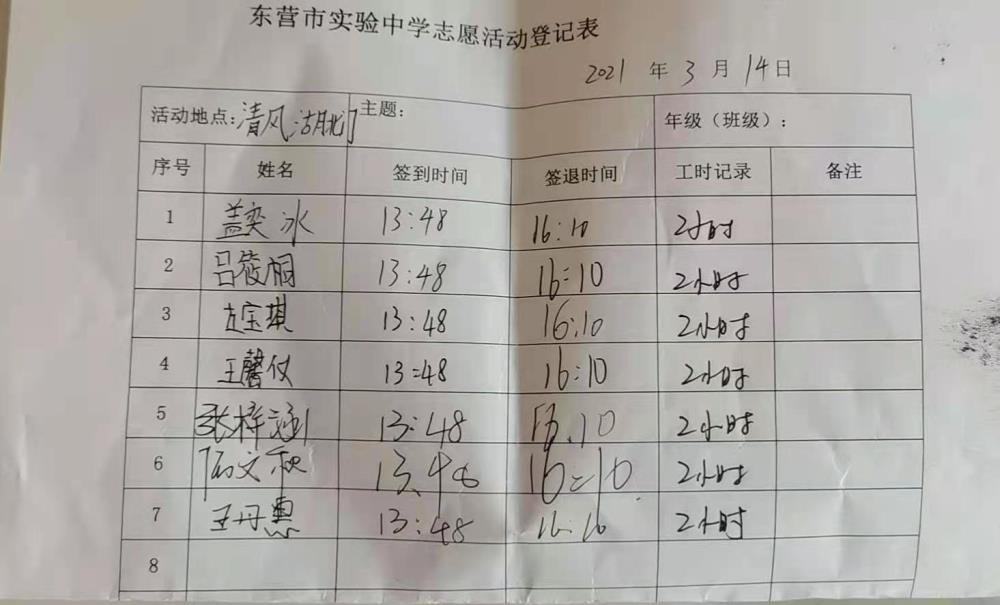 东营市实验中学志愿活动登记表
2021 年 3 月 14 日
活动地点:清风湖北门 主题: 年级（班级）:
序号 姓名 签到时间 签退时间 工时记录 备注
1 盖奕冰 13:48 16:10 2小时
2 吕筱桐 13:48 16:10 2小时
3 左宝琪 13:48 16:10 2小时
4 王馨仪 13:48 16:10 2小时
5 张梓涵 13:48 10 2小时
6 文秋 13:48 16:10 2小时
7 王丹惠 13:48 16:16 2小时
8